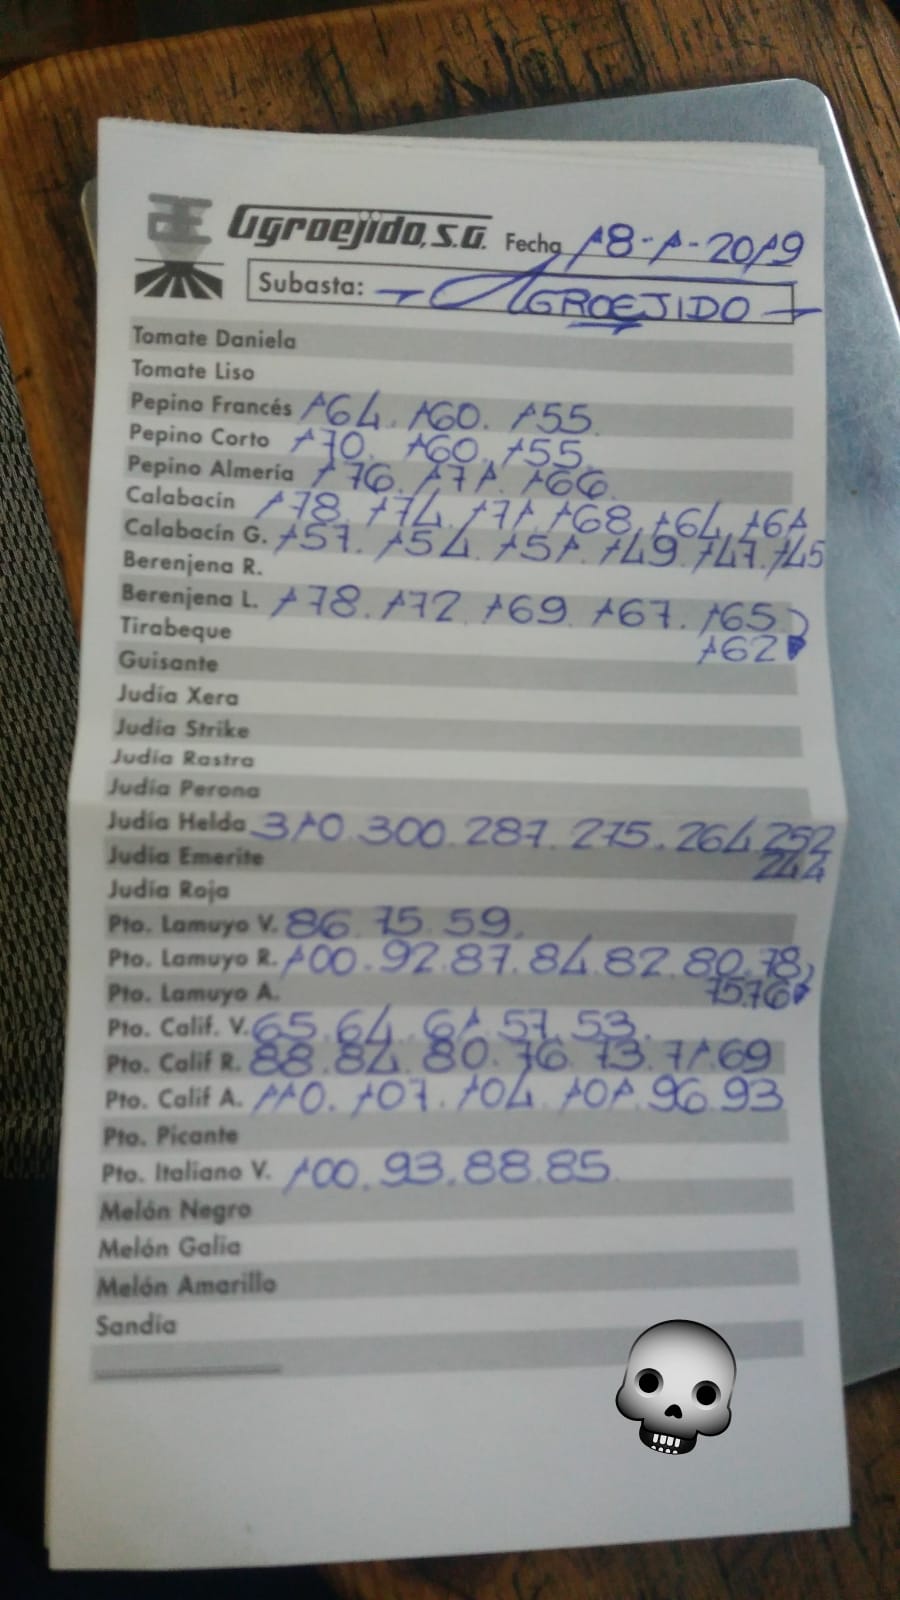 Agroejido, S.A. Fecha 18-1-2019
Subasta: AGROEJIDO
Tomate Daniela
Tomate Liso
Pepino Francés 164. 160. 155
Pepino Corto 170. 160. 155
Pepino Almería 176. 171. 166
Calabacín 178. 174. 171. 168. 164. 161
Calabacín G. 157. 154. 151. 149. 147. 145
Berenjena R.
Berenjena L. 178. 172. 169. 167. 165
Tirabeque 162
Guisante
Judía Xera
Judía Strike
Judía Rastra
Judía Perona
Judía Helda 310. 300. 287. 275. 264 252
Judía Emerite 244
Judía Roja
Pto. Lamuyo V. 86. 75. 59.
Pto. Lamuyo R. 100. 92. 87. 84. 82. 80. 78
Pto. Lamuyo A. 75.76
Pto. Calif. V. 65. 64. 61. 57. 53.
Pto. Calif R. 88. 84. 80. 76. 73. 71. 69
Pto. Calif A. 110. 107. 104. 101. 96. 93
Pto. Picante
Pto. Italiano V. 100. 93. 88. 85
Melón Negro
Melón Galia
Melón Amarillo
Sandía